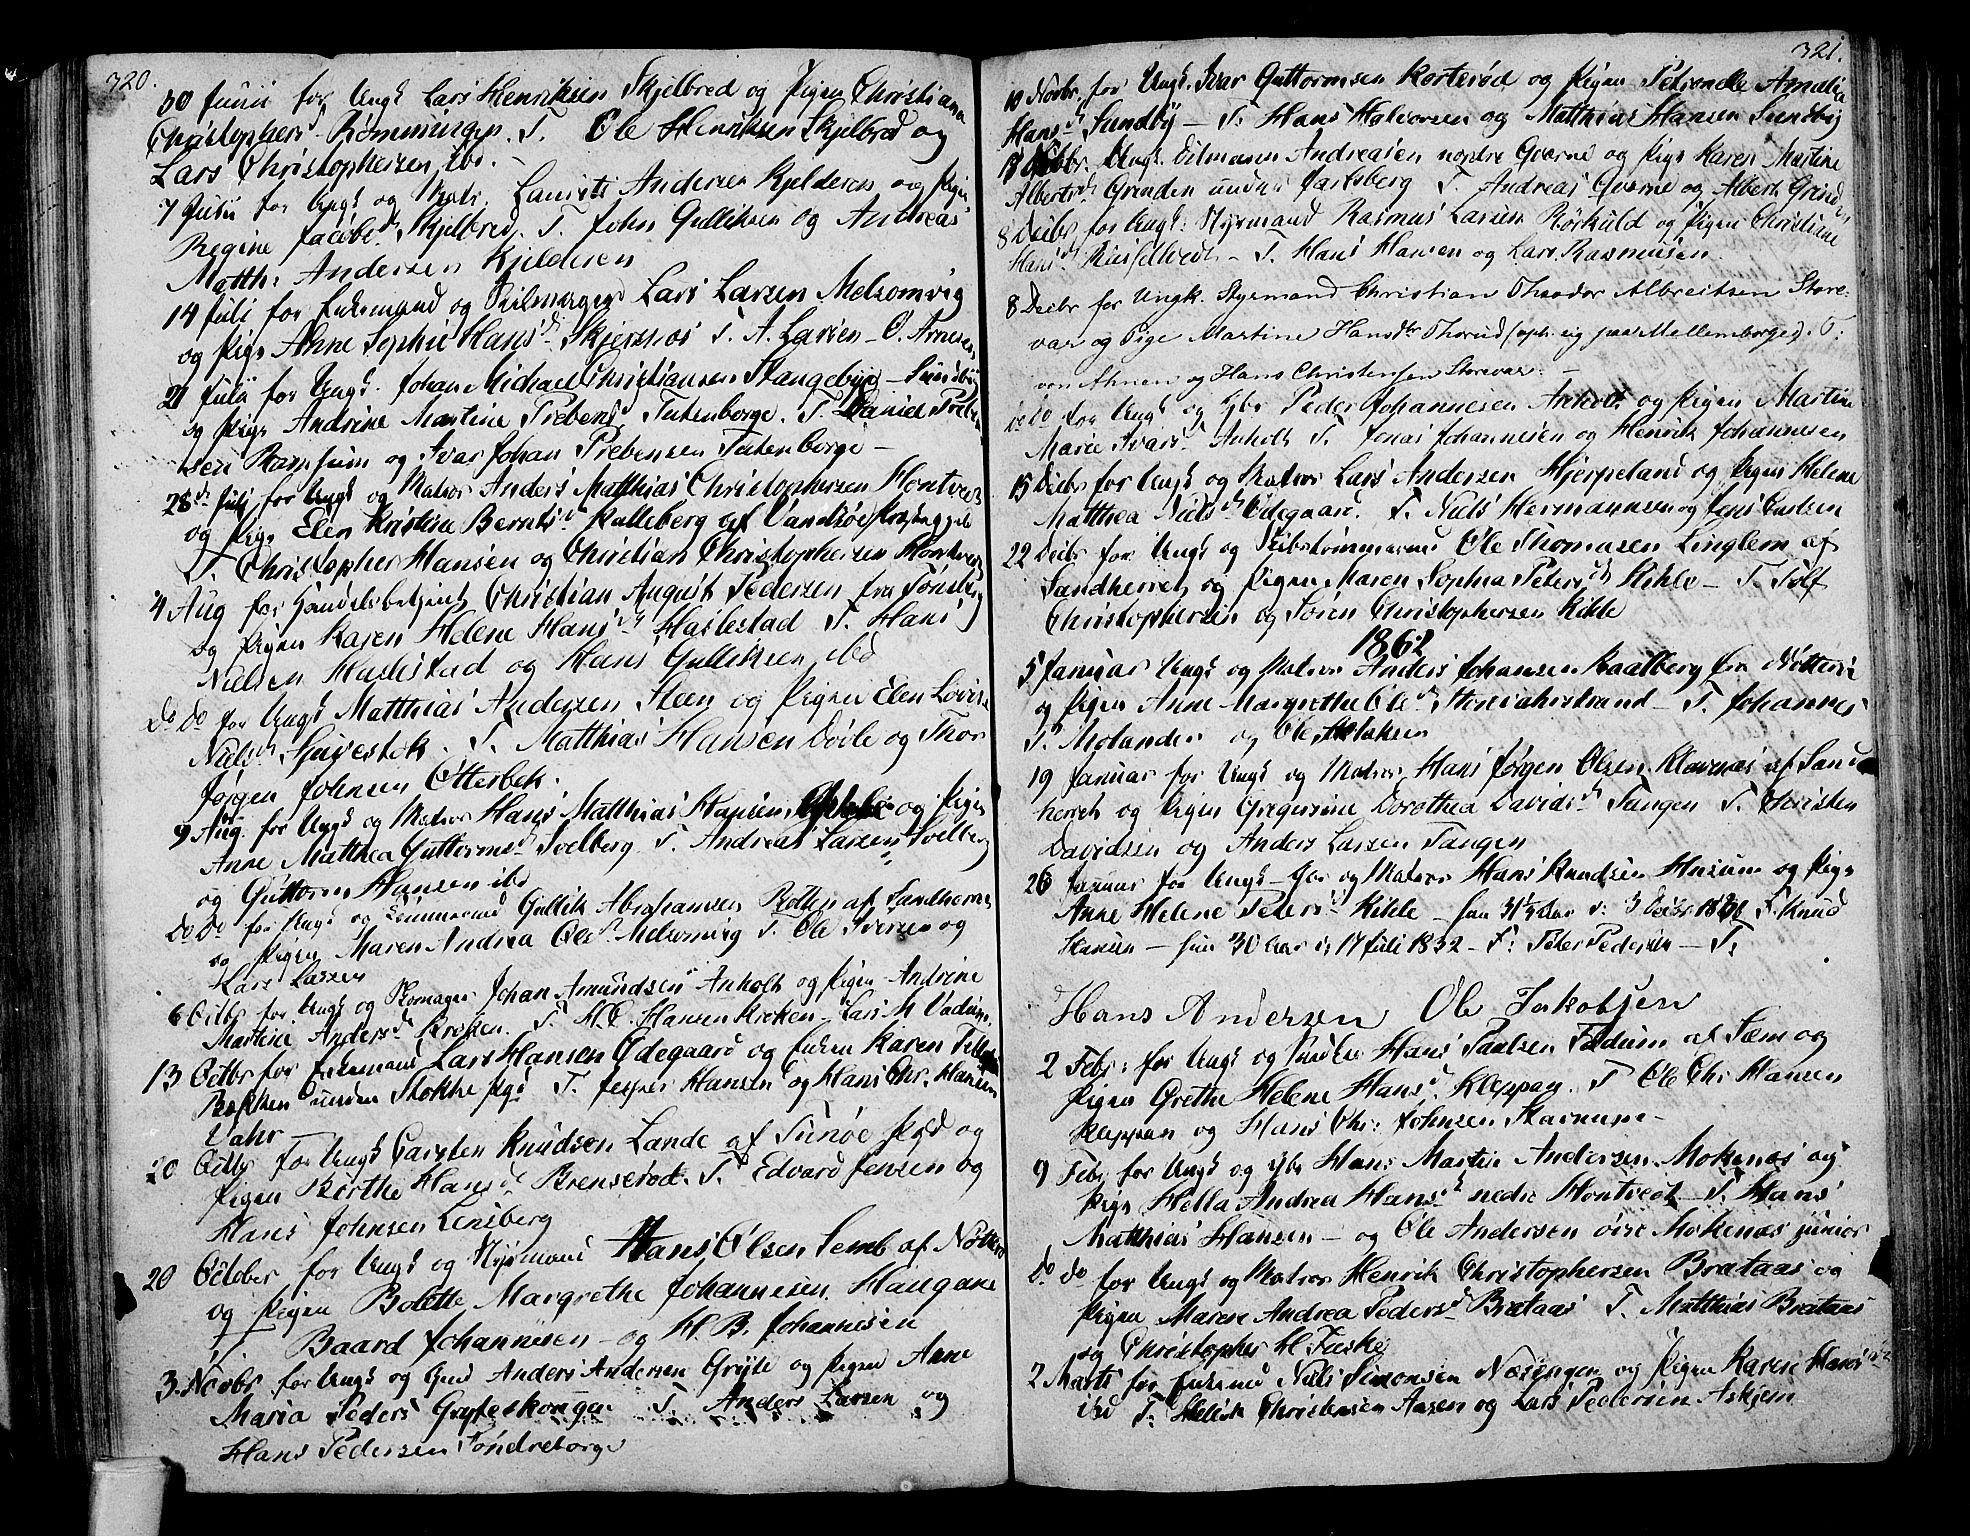 320.
30 Junii for Ungk Lars Henriksen Skjelbred og Pigen Christiana
Christophersd Rømmingen. T. Ole Henriksen Skjelbred og
Lars Christophersen ibd. -
7 Juli for Ungk og Matr. Laurits Andersen Kjelderen og Pigen
Regine Jacobsd Skjelbred. T. John Gulliksen og Andreas
Matth: Andersen Kjelderen
14 Juli for Enkemand og Lars Larsen Melsomvig
og Pige Anne Sophie Hansd Skjersnæs T. A. Larsen - O. Arnesen
21 Julii for Ungk. Johan Michael Christiansen Stangebye - Sundbye
og Pige Andrine Martine Prebensd Futenborge. T. Daniel Preben-
sen Ramsum og Ivar Johan Prebensen Futenborge -
28de Juli for Ungk og Matros Anders Matthias Christophersen Hontvet
og Pige Elen Kristine Berntsd Kalleberg af
T. Christopher Hansen og Christian Christophersen Hontvet
4 Aug for Handelsbetjent Christian August Pedersen fra Tønsberg
og Pigen Karen Helene Hansd Haslestad T. Hans
Nielsen Haslestad og Hans Gulliksen ibd
Do Do for Ungk Matthias Andersen Steen og Pigen Elen Lovise
Nielsd Gjivestok. T. Matthias Hansen Døile og Thor
Jørgen Johnsen Otterbek.
9 Aug. for Ungk og Matros Hans Matthias Hansen og Pigen
Anne Matthea Guttormsd Svelberg T. Andreas Larsen Svelberg
og Guttorm Hansen ibd
Do Do for Ungk og Tømmermand Gullik Abrahamsen af Sandherred
og Pigen Maren Andrea Olsd Melsomvig T. Ole Iversen og
Lars Larsen
6 Octbr for Ungk og Skomager Johan Amundsen Anholt og Pigen Andrine
Martine Andersd Kroken. T. H. C. Hansen Kroken - Lars M.
13 Octbr for Enkemand Lars Hansen Ødegaard og Enken Karen
Bakken under Stokke Pgd T. Jesper Hansen og Hans Chr. Hansen
Vahr -
20 Octbr for Ungk Carsten Knudsen Lande af Tjømø Pgd og
Pigen Birthe Hansd Brenserød. T. Edvard Jensen og
Hans Johnsen Lensberg
20 October for Ungk og Styrmand Hans Olsen Semb af Nøtterø
og Pigen Bolette Margrethe Johannesen Haugane
T. Baard Johannesen - og H. B. Johannesen
3. Novbr for Ungk og Anders Andersen Gryte og Pigen Anne
Maria Pedersd Grefteskougen T. Anders Larsen og
Hans Pedersen Søndreborge
321.
10 Novbr. for Ungk. Ivar Guttormsen Korterød og Pigen Petronelle Amalia
Hansd Sundby - T. Hans Halvorsen og Matthias Hansen Sundby
Ungk. Andreasen nordre Gverne og Pige Karen Martine
Albertsd Grinden under Jarlsberg T. Andreas Gverne og Albert Grinden
8 Decbr for Ungk: Styrmand Rasmus Larsen Rørkuld og Pigen Christine
Hansd Russeltvedt - T. Hans Hansen og Lars Rasmusen.
8 Decbr for Ungk. Styrmand Christian Theodor Albreitsen Store-
var og Pige Martine Hansdtr Thorud (oph. sig paa Mellemborge). T:
von Ahnen og Hans Christensen Storevar. -
do do for Ungk og Peder Johannesen Anholt og Pigen Martine
Marie Ivarsd Anholt T. Jonas Johannesen og Henrik Johannesen
15 Decbr for Ungk og Matros Lars Andersen Hjerpeland og Pigen Helene
Matthea Nielsd Ødegaard. T. Niels Hermannsen og Jens Carlsen
22 Decbr for Ungk og Skibstømmermand Ole Thomasen Linglem af
Sandherred og Pigen Maren Sophia Petersd Kihle - T. Tolf
Christophersen og Søren Christophersen Kihle
1862
5 Januar Ungk og Matros Anders Johansen Kaalberg fra Nøtterø
og Pigen Anne Margrethe Olsd - T. Johannes
T. Molander og Ole
19 Januar for Ungk og Matros Hans Jørgen Olsen Klavenæs af Sand-
herred og Pigen Gregersine Dorothea Davidsd Tangen T. Christen
Davidsen og Anders Larsen Tangen
26 Januar for Ungk - og Matros Hans Knudsen Husum og Pige
Anne Helene Petersd Kihle - han 31 1/3 Aar F. Knud
Hansen - hun 30 Aar 17 Juli 1832 - F: Peter Pedersen - T:
Hans Andersen Ole Jakobsen
2 Febr: for Ungk og Hans Paulsen Fadum af Sæm og
Pigen Grethe Helene Hansd Kleppan. T Ole Chr Hansen
Kleppan og Hans Chr: Johnsen Skarnum -
9 Feb. for Ungk og Hans Martin Andersen Mokenæs og
Pige Hella Andrea Hansd nedre Hontvedt - T. Hans
Matthias Hansen - og Ole Andersen øvre Mokenæs junior
Do Do for Ungk og Matros Henrik Christophersen Brataas og
Pigen Maren Andrea Pedersd Brataas T. Matthias Brataas
og Christopher H. Faske
2 Marts for Enkemd Niels Simonsen Næsengen og Pigen Karen Hansd
ibd T. Christensen Aasen og Lars Pedersen Askjem